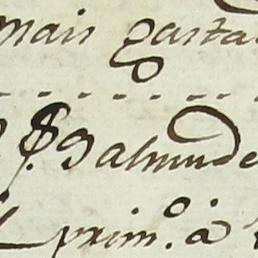 mais gasta
8
$. Salmude
prim.º à